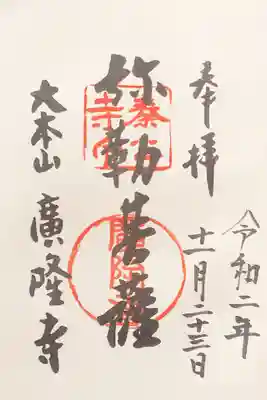 奉拝
令和二年
十一月二十三日
弥勒菩薩
大本山 廣隆寺